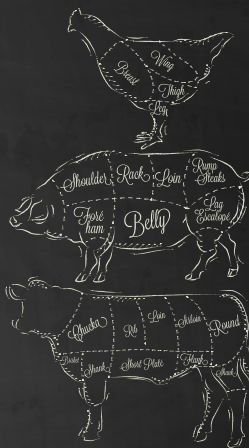 Wing
Breast
Thigh
Leg
Shoulder
Rack
Loin
Rump
Steaks
Foré
ham
Belly
Lag
Escalopé
Chucka
Rib
Loin
Sirloin
Round
Brisket
Shank
Short Plate
Flank
Shank